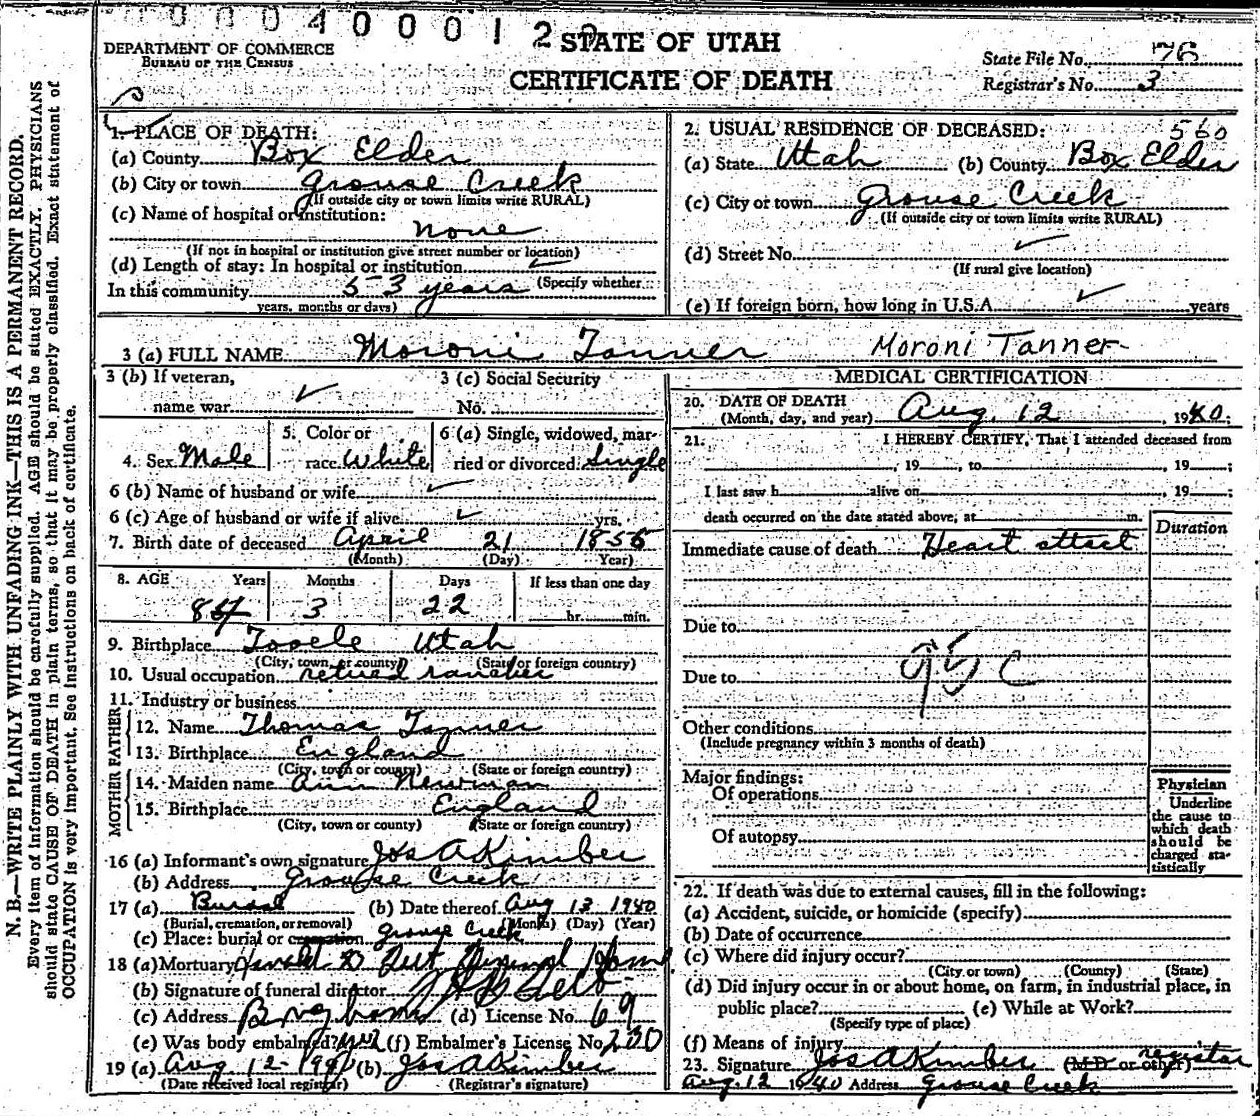 000400012
STATE OF UTAH
CERTIFICATE OF DEATH
DEPARTMENT OF COMMERCE
BUREAU OF THE CENSUS
State File No. 76
Registrar's No. 3
N. B.—WRITE PLAINLY WITH UNFADING INK—THIS IS A PERMANENT RECORD.
Every item of information should be carefully supplied. AGE should be stated EXACTLY. PHYSICIANS
should state CAUSE OF DEATH in plain terms, so that it may be properly classified. Exact statement of
OCCUPATION is very important. See instructions on back of certificate.
1. PLACE OF DEATH:
(a) County Box Elder
(b) City or town Grouse Creek
(If outside city or town limits write RURAL)
(c) Name of hospital or institution:
none
(If not in hospital or institution give street number or location)
(d) Length of stay: In hospital or institution
(Specify whether
In this community 53 years
years, months or days)
2. USUAL RESIDENCE OF DECEASED: 560
(a) State Utah (b) County Box Elder
(c) City or town Grouse Creek
(If outside city or town limits write RURAL)
(d) Street No.
(If rural give location)
(e) If foreign born, how long in U.S.A. years
3 (a) FULL NAME Moroni Tanner Moroni Tanner
3 (b) If veteran, 3 (c) Social Security
name war No.
4. Sex Male 5. Color or race White 6 (a) Single, widowed, married or divorced Single
6 (b) Name of husband or wife
6 (c) Age of husband or wife if alive yrs.
7. Birth date of deceased April 21 1856
(Month) (Day) Year)
8. AGE Years Months Days If less than one day
84 3 22 hr. min.
9. Birthplace Tooele Utah
(City, town, or county) (State or foreign country)
10. Usual occupation retired rancher
11. Industry or business
FATHER
12. Name Thomas Tanner
13. Birthplace England
(City, town or county) (State or foreign country)
MOTHER
14. Maiden name Ann Newman
15. Birthplace England
(City, town or county) (State or foreign country)
16 (a) Informant's own signature Jos A Kimber
(b) Address Grouse Creek
17 (a) Burial (b) Date thereof Aug 13 1940
(Burial, cremation, or removal) (Month) (Day) (Year)
(c) Place: burial or cremation Grouse Creek
18 (a) Mortuary
(b) Signature of funeral director
(c) Address (d) License No. 69
(e) Was body embalmed? (f) Embalmer's License No. 230
19 (a) Aug 12- (b) Jos A Kimber
(Date received local registrar) (Registrar's signature)
MEDICAL CERTIFICATION
20. DATE OF DEATH
(Month, day, and year) Aug. 12, 1940;
21. I HEREBY CERTIFY, That I attended deceased from
, 19 , to , 19 ;
I last saw h alive on , 19 ;
death occurred on the date stated above, at m.
Duration
Immediate cause of death Heart attact
Due to
95 C
Due to
Other conditions
(Include pregnancy within 3 months of death)
Major findings:
Of operations
Of autopsy
Physician
Underline
the cause to
which death
should be
charged sta-
tistically
22. If death was due to external causes, fill in the following:
(a) Accident, suicide, or homicide (specify)
(b) Date of occurrence
(c) Where did injury occur?
(City or town) (County) (State)
(d) Did injury occur in or about home, on farm, in industrial place, in
public place? (e) While at Work?
(Specify type of place)
(f) Means of injury
23. Signature Jos A Kimber (M D or other) registar
Aug. 12 1940 Address Grouse Creek